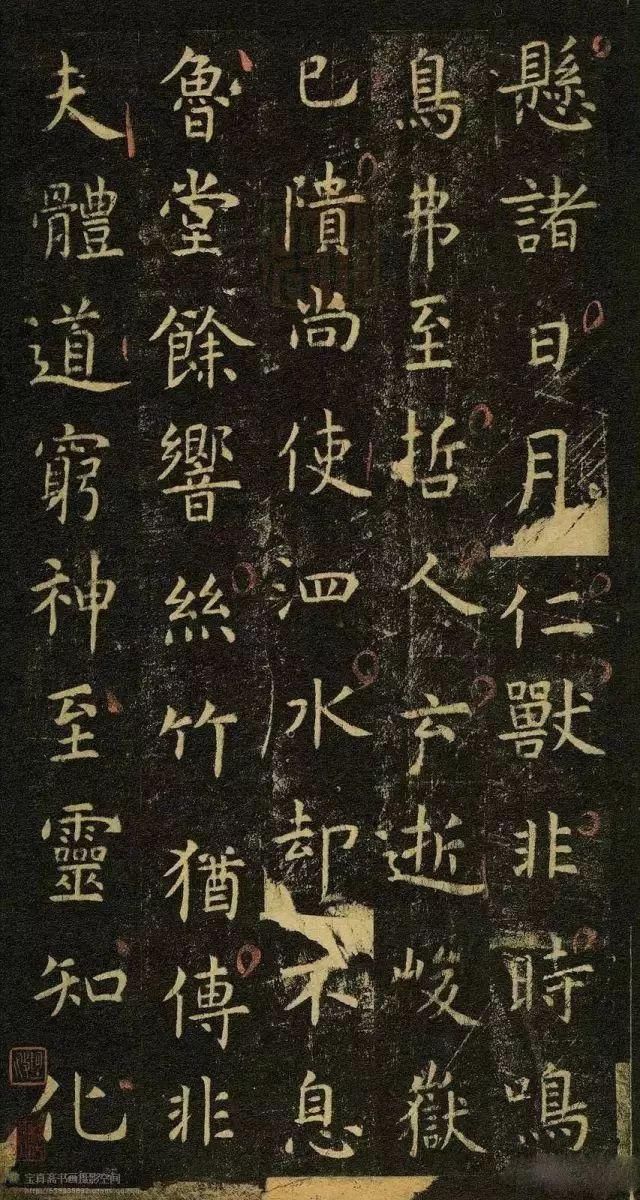 懸諸日月仁獸非時鳴
鳥弗至哲人云逝峻嶽
已隤尚使泗水却不息
魯堂餘響絲竹猶傳非
夫體道窮神至靈知化
书画摄影空间